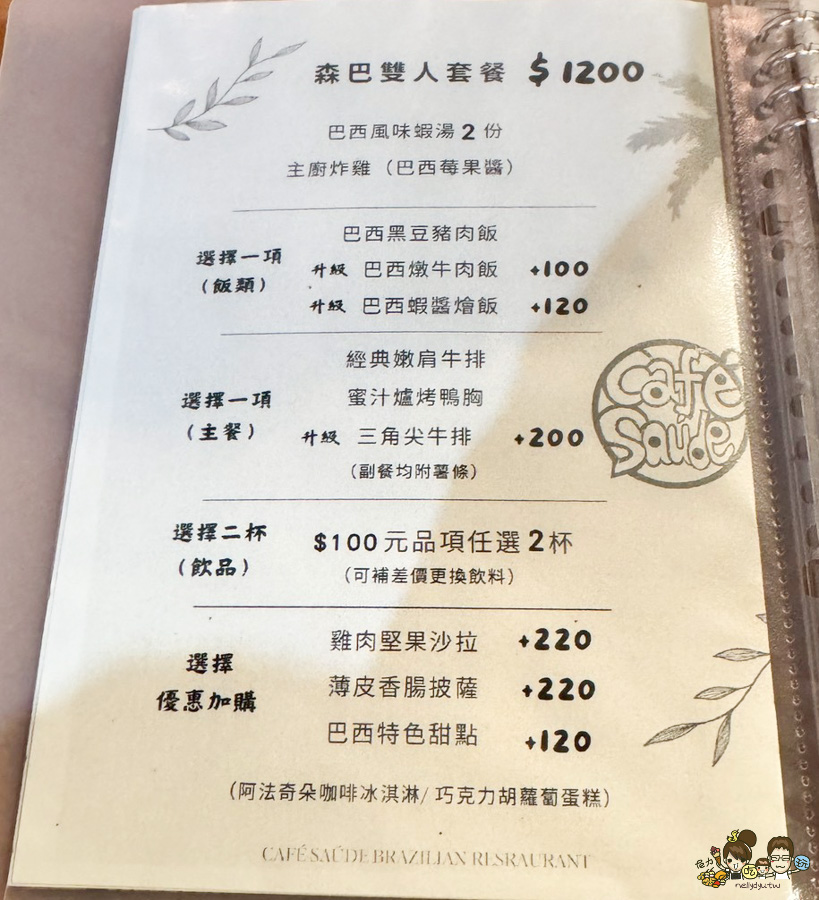 森巴雙人套餐 $1200
巴西風味蝦湯2份
主廚炸雞（巴西莓果醬）
選擇一項
（飯類）
巴西黑豆豬肉飯
升級 巴西燉牛肉飯 +100
升級 巴西蝦醬燴飯 +120
選擇一項
（主餐）
經典嫩肩牛排
蜜汁爐烤鴨胸
升級 三角尖牛排 +200
（副餐均附薯條）
Café
Saúde
選擇二杯
（飲品）
$100元品項任選2杯
（可補差價更換飲料）
選擇
優惠加購
雞肉堅果沙拉 +220
薄皮香腸披薩 +220
巴西特色甜點 +120
（阿法奇朵咖啡冰淇淋/巧克力胡蘿蔔蛋糕）
CAFÉ SAÚDE BRAZILIAN RESRAURANT
nellydyu.tw